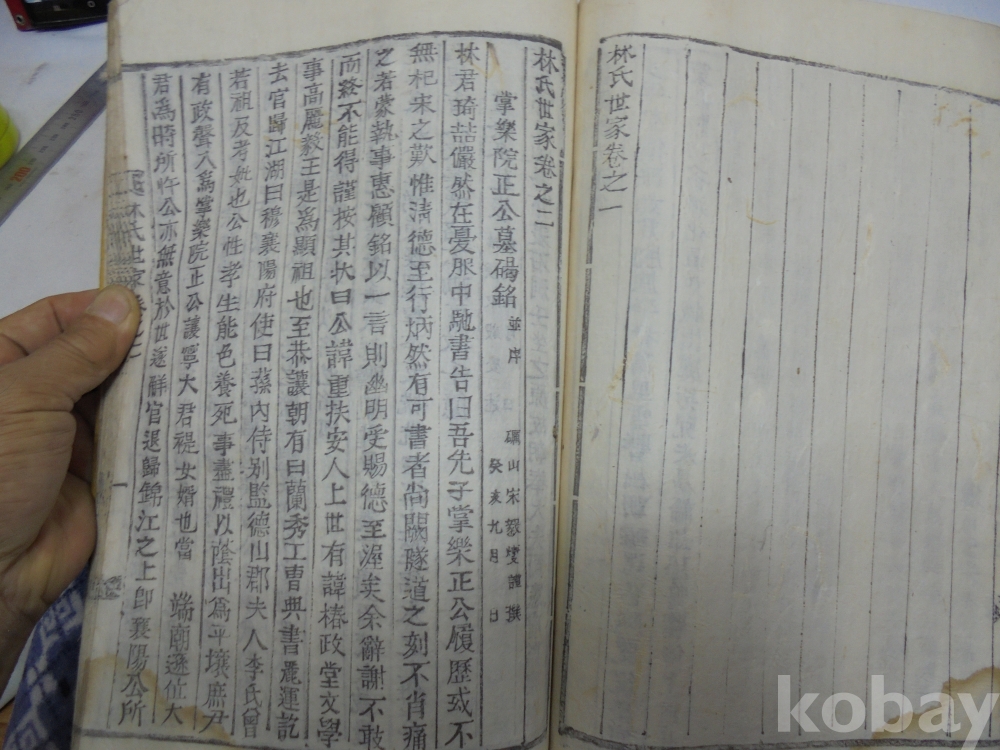 林氏世家卷之一
林氏世家卷之二
掌樂院正公墓碣銘 並序
礪山宋 謹撰
癸亥九月 日
林君琦喆儼然在憂服中馳書告旧吾先子掌樂正公履歷或不
無杞宋之歎惟清德至行炳然有可書者尚闕隧道之刻不肖痛
之若蒙執事惠顧銘以一言則幽明受賜德至渥矣余辭謝不敢
而終不能得謹按其狀曰公諱重扶安人上世有諱椿政堂文學
事高麗毅王是爲顯祖也至恭讓朝有曰蘭秀工曹典書麗運訖
去官歸江湖曰穆襄陽府使曰蓀內侍别監德山郡夫人李氏曾
若祖及考妣也公性孝生能色養死事盡禮以蔭出爲平壤庶尹
有政聲入爲掌樂院正公讓寧大君禔女婿也當 端廟遜位大
君爲時所忤公亦無意於世遂辭官退歸錦江之上卽襄陽公所
林氏世家卷之二
一
kobay